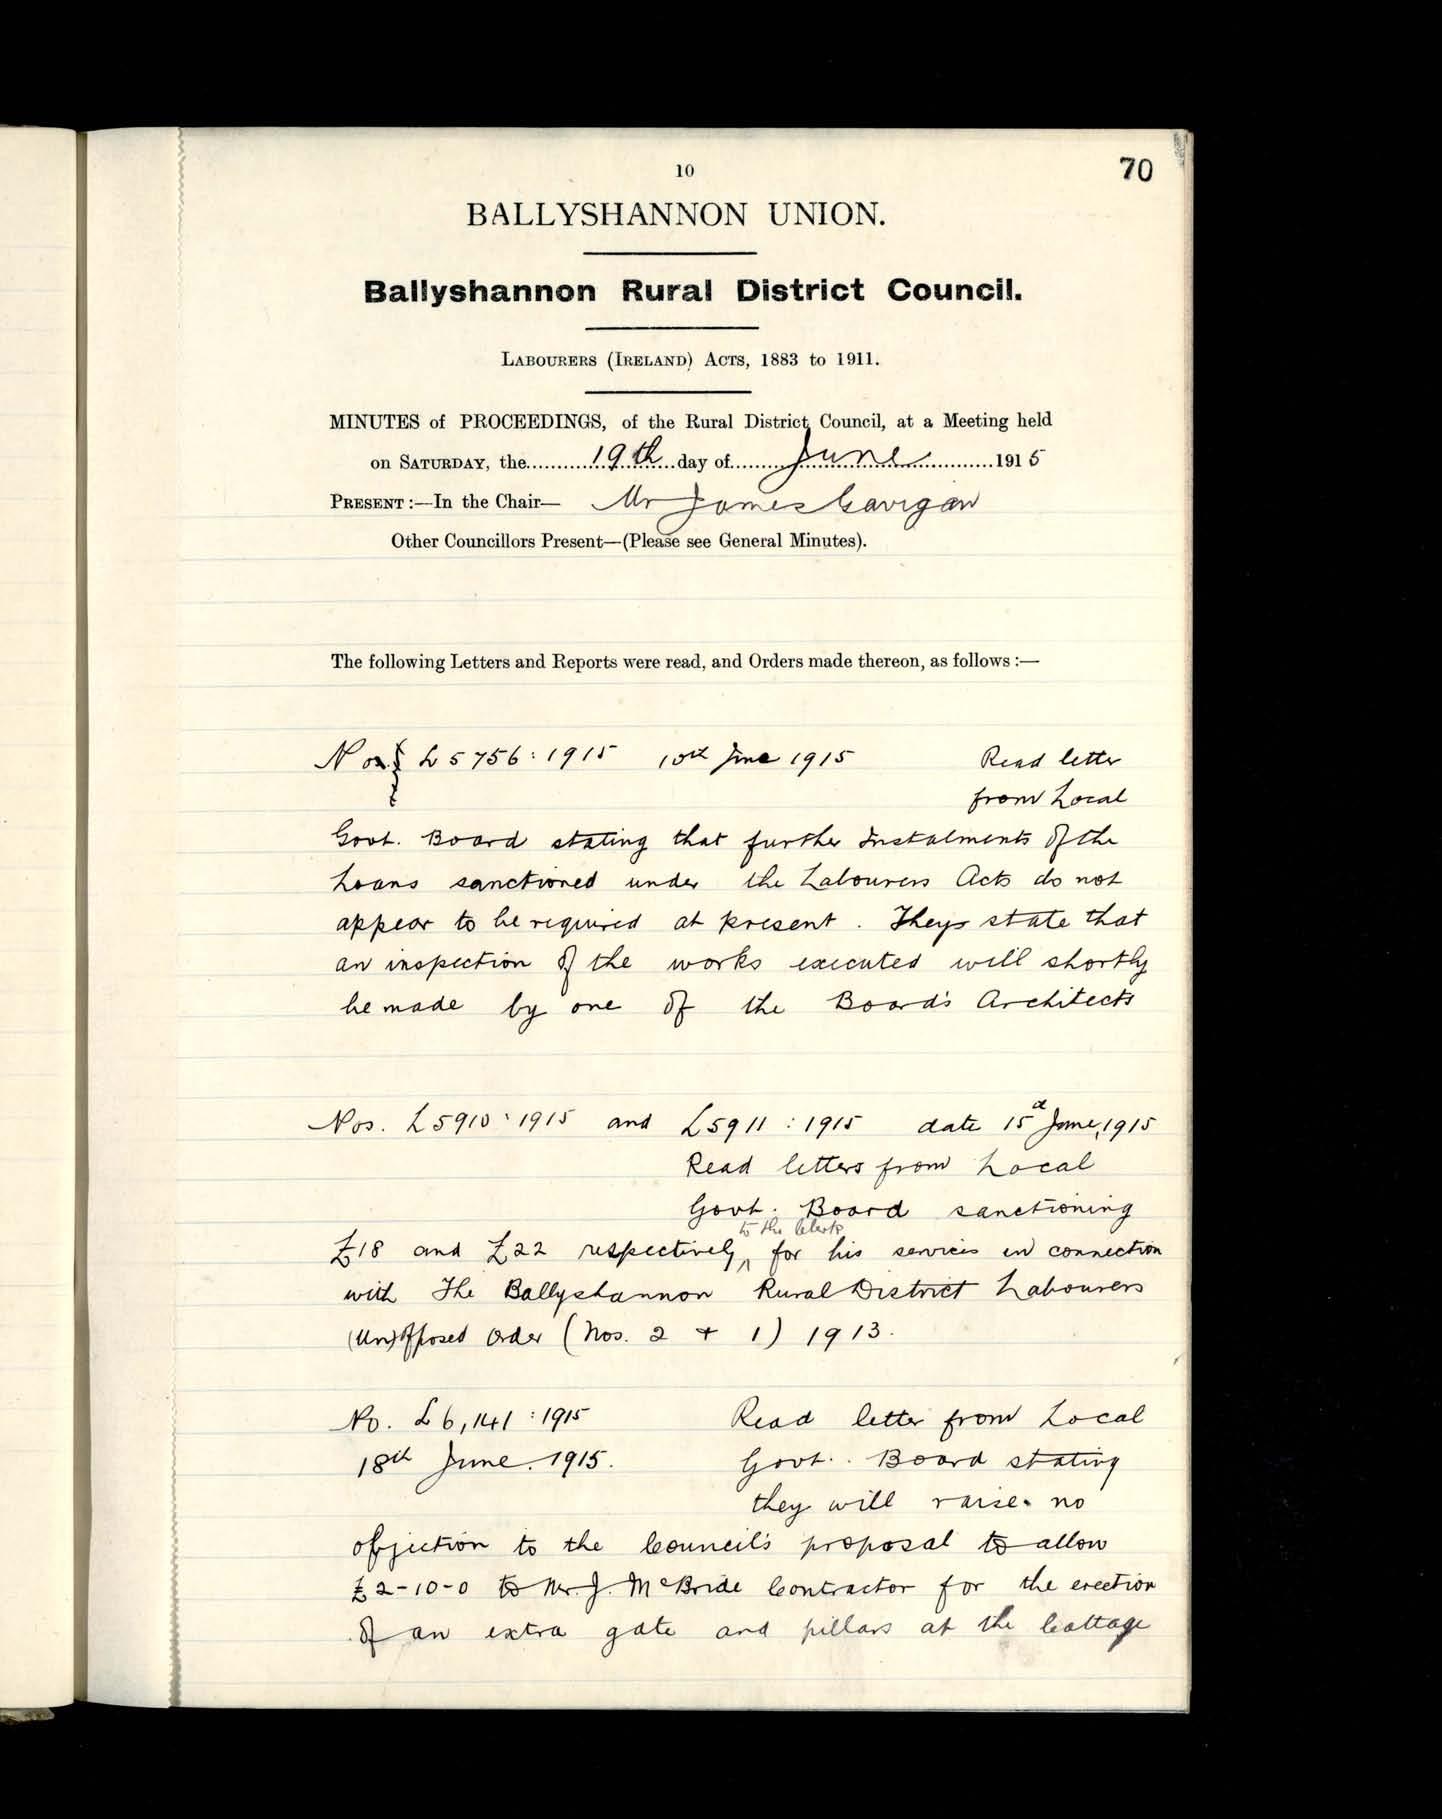 10
70
BALLYSHANNON UNION.
Ballyshannon Rural District Council.
LABOURERS (IRELAND) ACTS, 1883 to 1911.
MINUTES of PROCEEDINGS, of the Rural District Council, at a Meeting held
on SATURDAY, the 19th day of June 1915
PRESENT:—In the Chair— Mr James Gavigan
Other Councillors Present—(Please see General Minutes).
The following Letters and Reports were read, and Orders made thereon, as follows:—
No. L 5756 : 1915 10th June 1915 Read letter
from Local
Govt. Board stating that further Instalments of the
Loans sanctioned under the Labourers Acts do not
appear to be required at present. They state that
an inspection of the works executed will shortly
be made by one of the Board's Architects
Nos. L5910 : 1915 and L5911 : 1915 date 15th June, 1915
Read letters from Local
Govt. Board sanctioning
to the Clerk
£18 and £22 respectively, for his services in connection
with The Ballyshannon Rural District Labourers
(Un)Opposed Order (Nos. 2 + 1) 1913.
No. L6,141 : 1915 Read letter from Local
18th June. 1915. Govt. Board stating
they will raise no
objection to the Council's proposal to allow
£2-10-0 to Mr. J. McBride Contractor for the erection
of an extra gate and pillars at the Cottage